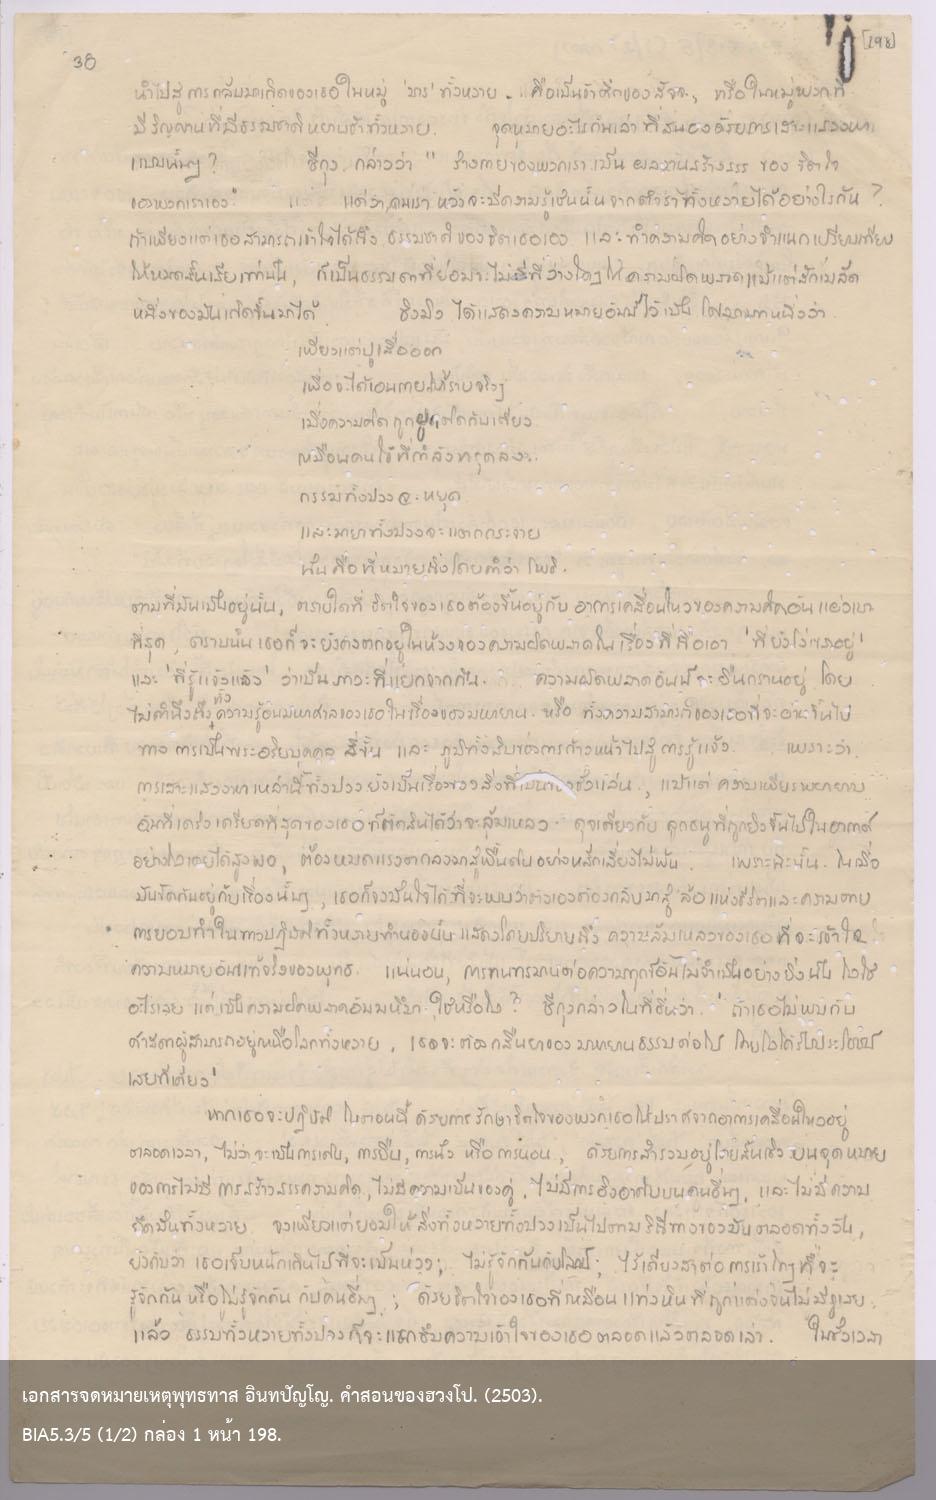 38
[198]
นำไปสู่ การกลับมาเกิดของเธอในหมู่ 'มาร' ทั้งหลาย - คือเป็นข้าศึกของสัจจะ, หรือในหมู่พวกที่
มีวิญญาณที่มีธรรมชาติหยาบช้าทั้งหลาย. จุดหมายอะไรกันเล่า ที่สนองด้วยการเสาะแสวงหา
แบบนั้นๆ? ชีกุง กล่าวว่า " ร่างกายของพวกเรา เป็น ผลงานสร้างสรร ของ จิตใจ
ของพวกเราเอง" แต่ว่า คนเรา หวังจะมีความรู้เช่นนั้น จากตำราทั้งหลายได้อย่างไรกัน?
ถ้าเพียงแต่เธอสามารถเข้าใจได้ถึง ธรรมชาติของจิตเธอเอง และทำความคิดอย่างจำแนกเปรียบเทียบ
ให้หมดสิ้นเสียเท่านั้น, ก็เป็นธรรมดาที่ย่อมจะไม่มีที่ว่างใดๆ ให้ความผิดพลาดแม้แต่สักเมล็ด
หนึ่งของมันเกิดขึ้นมาได้ ชิงมิง ได้แสดงความหมายอันนี้ไว้เป็น โศลกบทหนึ่งว่า
เพียงแต่ปูเสื่อออก
เพื่อจะได้เอนกายให้ราบจริงๆ
เมื่อความคิดถูก ติดกับเตียง
เหมือนคนไข้ที่กำลังทรุดลง..
กรรมทั้งปวงจะหยุด
และมายาทั้งปวงจะแตกกระจาย
นั่นคือที่หมายถึงโดยคำว่า โพธิ.
ตามที่มันเป็นอยู่นั้น, ตราบใดที่ จิตใจของเธอต้องขึ้นอยู่กับ อาการเคลื่อนไหวของความคิดอันแผ่วเบา
ที่สุด, ตราบนั้น เธอก็จะยังคงตกอยู่ในห้วงของความผิดพลาดในเรื่องที่ถือเอา 'ที่ยังโง่เขลาอยู่'
และ 'ที่รู้แจ้งแล้ว' ว่าเป็น ภาวะที่แยกจากกัน. ความผิดพลาดอันนี้จะยืนกรานอยู่ โดย
ไม่คำนึงถึงทั้งความรู้อันมหาศาลของเธอในเรื่องของมหายาน หรือ ทั้งความสามารถของเธอที่จะผ่านขึ้นไป
ทาง การเป็นพระอริยบุคคล สี่ขั้น และ ภูมิทั้งสิบของการก้าวหน้าไปสู่ การรู้แจ้ง. เพราะว่า
การเสาะแสวงหาเหล่านี้ทั้งปวง ยังเป็นเรื่องของสิ่งที่เป็นของชั่วแล่น, แม้แต่ ความเพียรพยายาม
อันที่เคร่งเครียดที่สุดของเธอ ก็ตัดสินได้ว่าจะล้มเหลว ดุจเดียวกับ ลูกธนูที่ถูกยิงขึ้นไปในอากาศ
อย่างไรเคยได้สูงพอ, ต้องหมดแรงตกลงมาสู่พื้นดินอย่างหลีกเลี่ยงไม่พ้น. เพราะฉะนั้น ในเมื่อ
มันขัดกันอยู่กับเรื่องนั้นๆ, เธอก็จงมั่นใจได้ที่จะพบว่าตัวเองต้องกลับมาสู่ ล้อแห่งชีวิตและความตาย
การยอมทำในทางปฏิบัติทั้งหลายทำนองนั้น แสดงโดยปริยายถึง ความล้มเหลวของเธอที่จะเข้าใจ
ความหมายอันแท้จริงของพุทธะ แน่นอน, การทนทรมานต่อความทุกข์อันไม่จำเป็นอย่างยิ่งนั้น ไม่ใช่
อะไรเลย แต่เป็นความผิดพลาดอันมหึมา ใช่หรือไม่? ชีกุงกล่าวในที่อื่นว่า ' ถ้าเธอไม่พบกับ
ศาสดาผู้สามารถอยู่เหนือโลกทั้งหลาย, เธอจะต้องกลืนยาของ มหายานธรรมต่อไป โดยไม่ได้รับประโยชน์
เลยทีเดียว'
หากเธอจะปฏิบัติ ในตอนนี้ ด้วยการรักษาจิตใจของพวกเธอให้ปราศจากอาการเคลื่อนไหวอยู่
ตลอดเวลา, ไม่ว่าจะเป็นการเดิน, การยืน, การนั่ง หรือการนอน, ด้วยการสำรวมอยู่โดยสิ้นเชิง บนจุดหมาย
ของการไม่มี การสร้างสรรความคิด, ไม่มีความเป็นของคู่, ไม่มีการอิงอาศัยบนคนอื่นๆ, และไม่มีความ
ยึดมั่นทั้งหลาย จงเพียงแต่ยอมให้ สิ่งทั้งหลายทั้งปวงเป็นไปตาม วิถีทางของมันตลอดทั้งวัน,
ยังกับว่า เธอเจ็บหนักเกินไปที่จะเป็นห่วง; ไม่รู้จักกันกับโลกนี้; ไร้เดียงสาต่อ การเร้าใดๆ ที่จะ
รู้จักกัน หรือไม่รู้จักกัน กับคนอื่นๆ; ด้วยจิตใจของเธอที่เหมือน แท่งหินที่ถูกแต่งจนไม่มีรูเลย
แล้ว ธรรมทั้งหลายทั้งปวง ก็จะแทรกซึมความเข้าใจของเธอตลอดแล้วตลอดเล่า. ในชั่วเวลา
เอกสารจดหมายเหตุพุทธทาส อินทปัญโญ. คำสอนของฮวงโป. (2503).
BIA5.3/5 (1/2) กล่อง 1 หน้า 198.